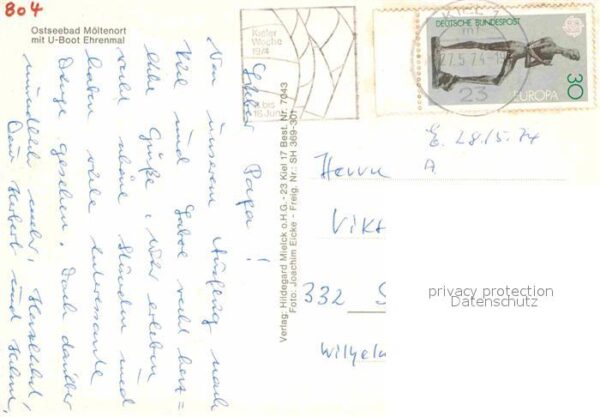 804
Ostseebad Möltenort
mit U-Boot Ehrenmal
Kieler
Woche
1974
bis
16 Juni
KIEL 1
mf
27.5.74-19
23
DEUTSCHE BUNDESPOST
EUROPA
30
E. 28/5.74
A
Lieber Papa!
Von unserem Ausflug nach
Kiel und Laboe recht herz=
liche Grüße. Wir erleben
recht schöne Stunden und
haben viele interessante
Dinge gesehen. Doch darüber
mündlich mehr. Herzlichst,
Dein Herbert und
Verlag: Hildegard Mielck o.H.G. - 23 Kiel 17 Best. Nr. 7043
Foto: Joachim Eicke - Freig. Nr.: SH 369-301
Herrn
Vikt
332 S
Wilhelm
privacy protection
Datenschutz